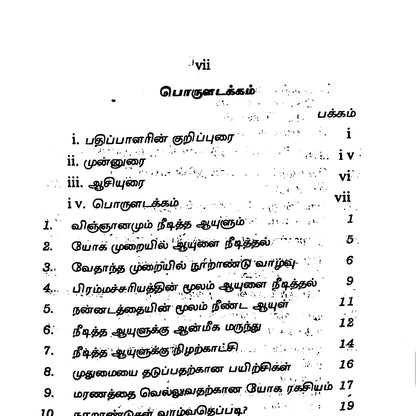 vii
பொருளடக்கம்
பக்கம்
i. பதிப்பாளரின் குறிப்புரை i
ii. முன்னுரை iv
iii. ஆசியுரை vi
iv. பொருளடக்கம் vii
1. விஞ்ஞானமும் நீடித்த ஆயுளும் 1
2. யோக முறையில் ஆயுளை நீடித்தல் 5
3. வேதாந்த முறையில் நூறாண்டு வாழ்வு 6
4. பிரம்மச்சரியத்தின் மூலம் ஆயுளை நீடித்தல் 9
5. நன்னடத்தையின் மூலம் நீண்ட ஆயுள் 11
6. நீடித்த ஆயுளுக்கு ஆன்மீக மருந்து 12
7. நீடித்த ஆயுளுக்கு நிழற்காட்சி 14
8. முதுமையை தடுப்பதற்கான பயிற்சிகள் 16
9. மரணத்தை வெல்லுவதற்கான யோக ரகசியம் 17
10. நூறாண்டுகள் வாழ்வதெப்படி? 19